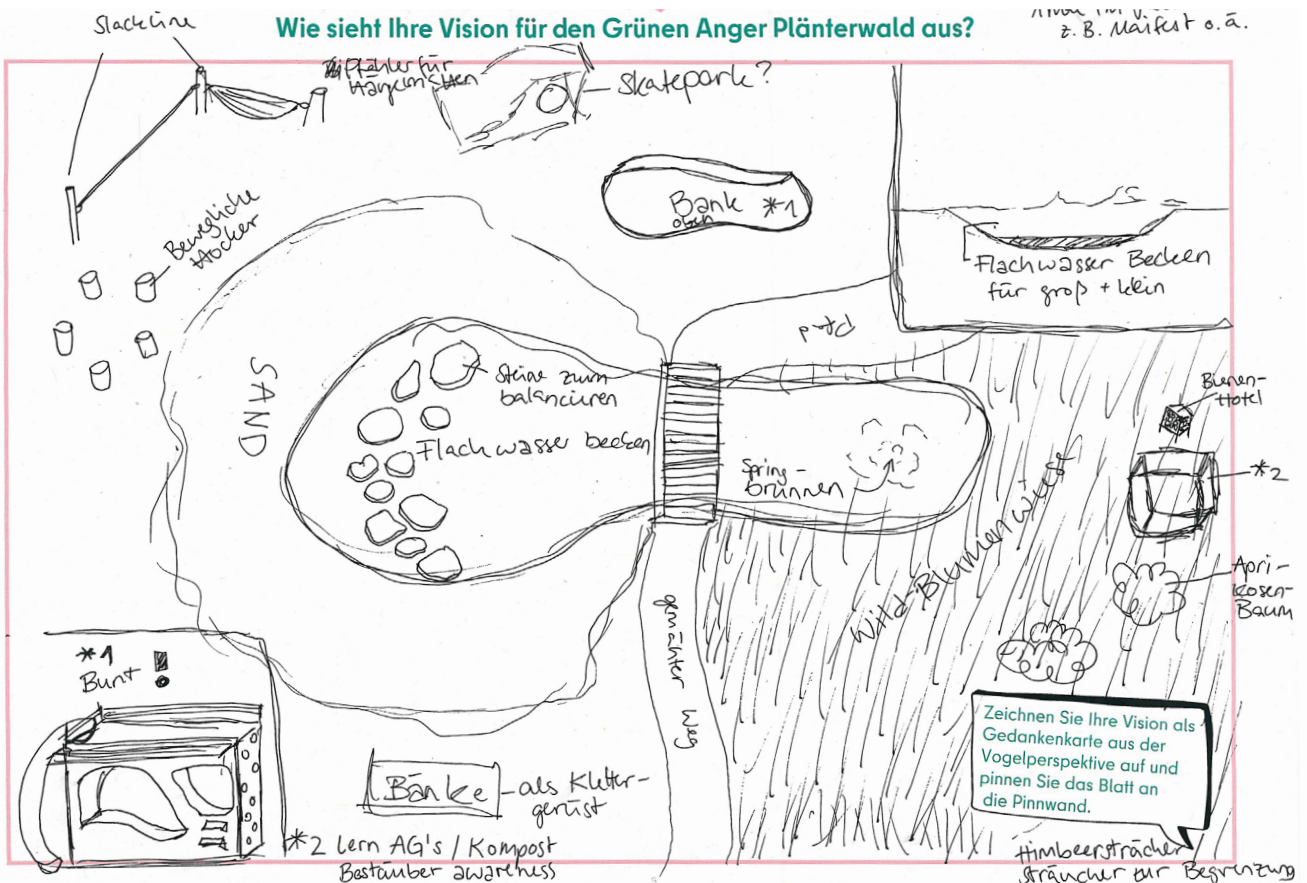 Slackline
Wie sieht Ihre Vision für den Grünen Anger Plänterwald aus?
z. B. Maifest o. ä.
Pfähler für
Hängematten
Skatepark?
Bewegliche
Hocker
Bank *1
oben
Flachwasser Becken
für groß + klein
Pfad
SAND
Steine zum
balancieren
Flachwasser becken
Spring-
brunnen
Bienen-
Hotel
*2
Wild-Blumenwiese
Apri-
kosen-
Baum
*1
Bunt !
gemähter Weg
Bänke - als Kletter-
gerüst
*2 Lern AG's / Kompost
Bestäuber awareness
Zeichnen Sie Ihre Vision als
Gedankenkarte aus der
Vogelperspektive auf und
pinnen Sie das Blatt an
die Pinnwand.
Himbeersträcher
sträucher zur Begrenzung